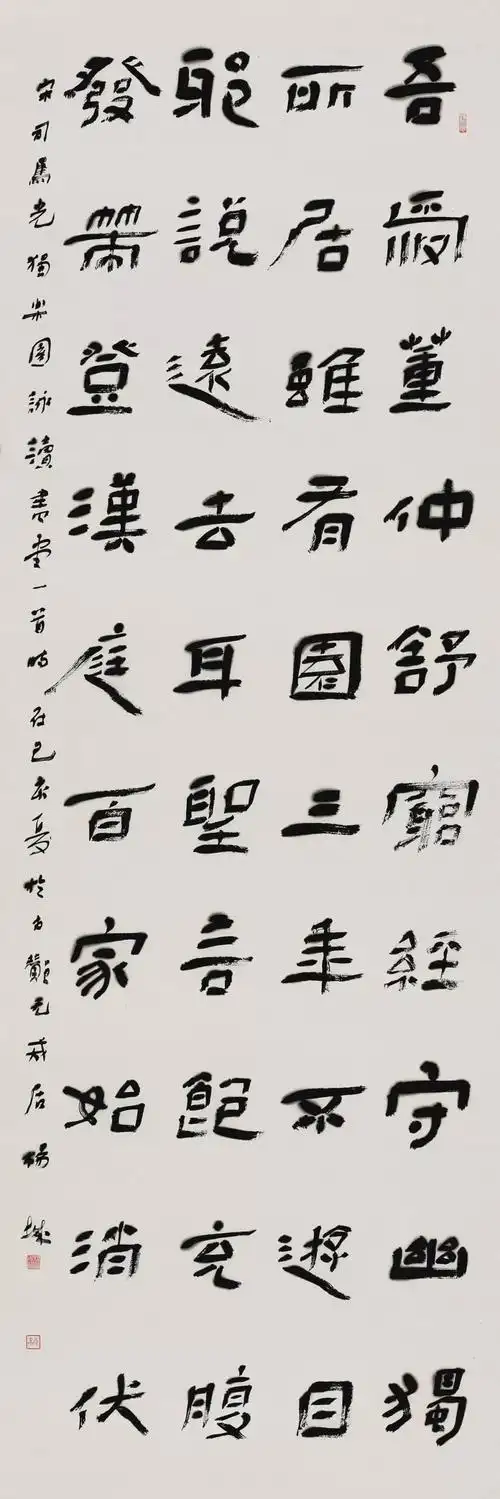 吾愛董仲舒窮經守幽獨
所居雖有園三年不遊目
邪說遠去耳聖言飽充腹
發策登漢庭百家始消伏
宋司馬光獨樂園詠讀書堂一首時在己亥夏於